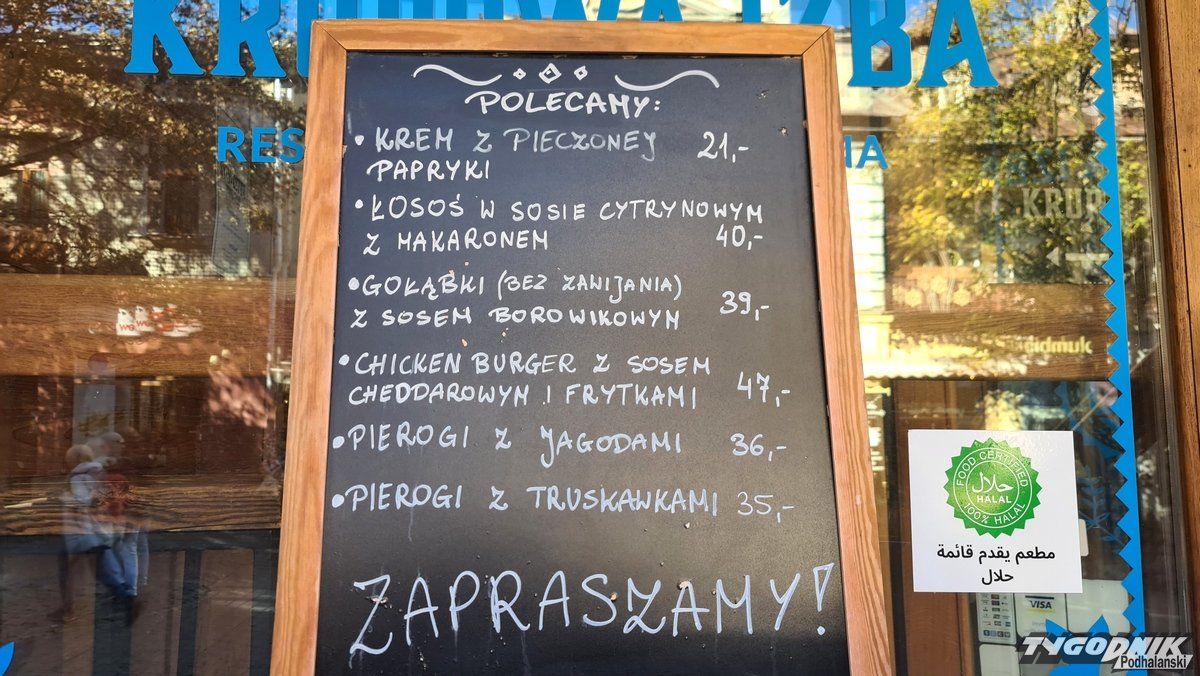 IZBA
POLECAMY:
• KREM Z PIECZONEJ 21,-
PAPRYKI
• ŁOSOŚ W SOSIE CYTRYNOWYM
Z MAKARONEM 40,-
• GOŁĄBKI (BEZ ZAWIJANIA)
Z SOSEM BOROWIKOWYM 39,-
• CHICKEN BURGER Z SOSEM
CHEDDAROWYM I FRYTKAMI 47,-
• PIEROGI Z JAGODAMI 36,-
• PIEROGI Z TRUSKAWKAMI 35,-
ZAPRASZAMY!
FOOD CERTIFIED
حلال
HALAL
100% HALAL
مطعم يقدم قائمة
حلال
VISA
TYGODNIK
Podhalański